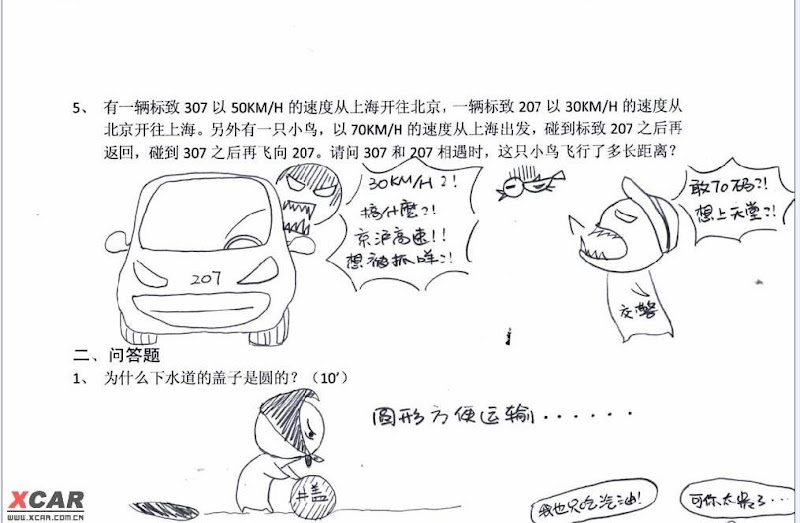 5、 有一辆标致 307 以 50KM/H 的速度从上海开往北京，一辆标致 207 以 30KM/H 的速度从
北京开往上海。另外有一只小鸟，以 70KM/H 的速度从上海出发，碰到标致 207 之后再
返回，碰到 307 之后再飞向 207。请问 307 和 207 相遇时，这只小鸟飞行了多长距离？
30KM/H？！
搞什麽？！
京沪高速！！
想被抓咩？！
敢70码？！
想上天堂？！
207
交警
二、问答题
1、 为什么下水道的盖子是圆的？（10’）
圆形方便运输......
井盖
我也只吃汽油！
可你太累了...
XCAR
WWW.XCAR.COM.CN